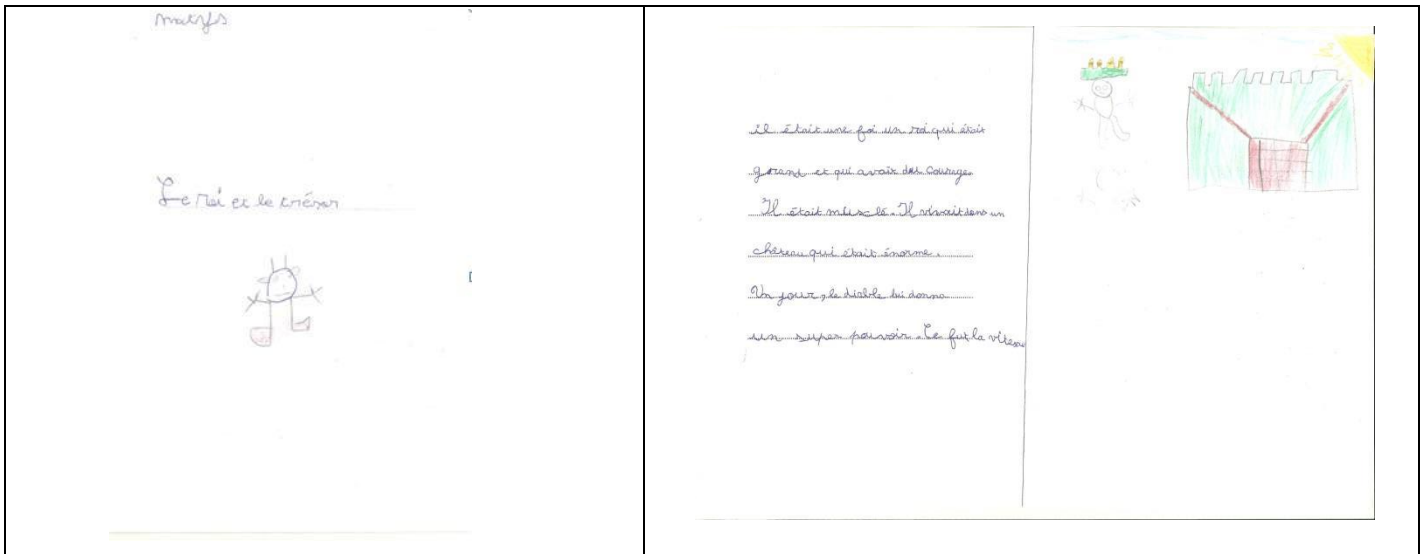 Le roi et le trésor
il était une foi un roi qui était
grand et qui avait des courage
Il était musclé. Il vivait dans un
château qui était énorme.
Un jour, le diable lui donna
un super pouvoir. Ce fut la vitesse